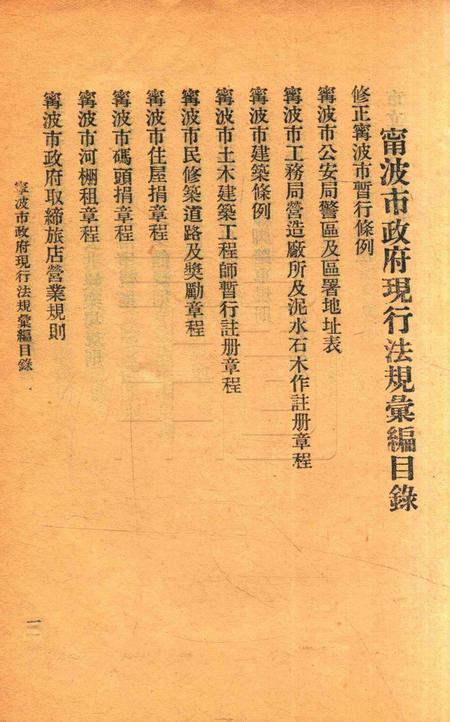 甯波市政府現行法規彙編目錄
修正甯波市暫行條例
甯波市公安局警區及區署地址表
甯波市工務局營造廠所及泥水石木作註册章程
甯波市建築條例
甯波市土木建築工程師暫行註册章程
甯波市民修築道路及獎勵章程
甯波市住屋捐章程
甯波市碼頭捐章程
甯波市河棚租章程
甯波市政府取締旅店營業規則
甯波市政府現行法規彙編目錄
一